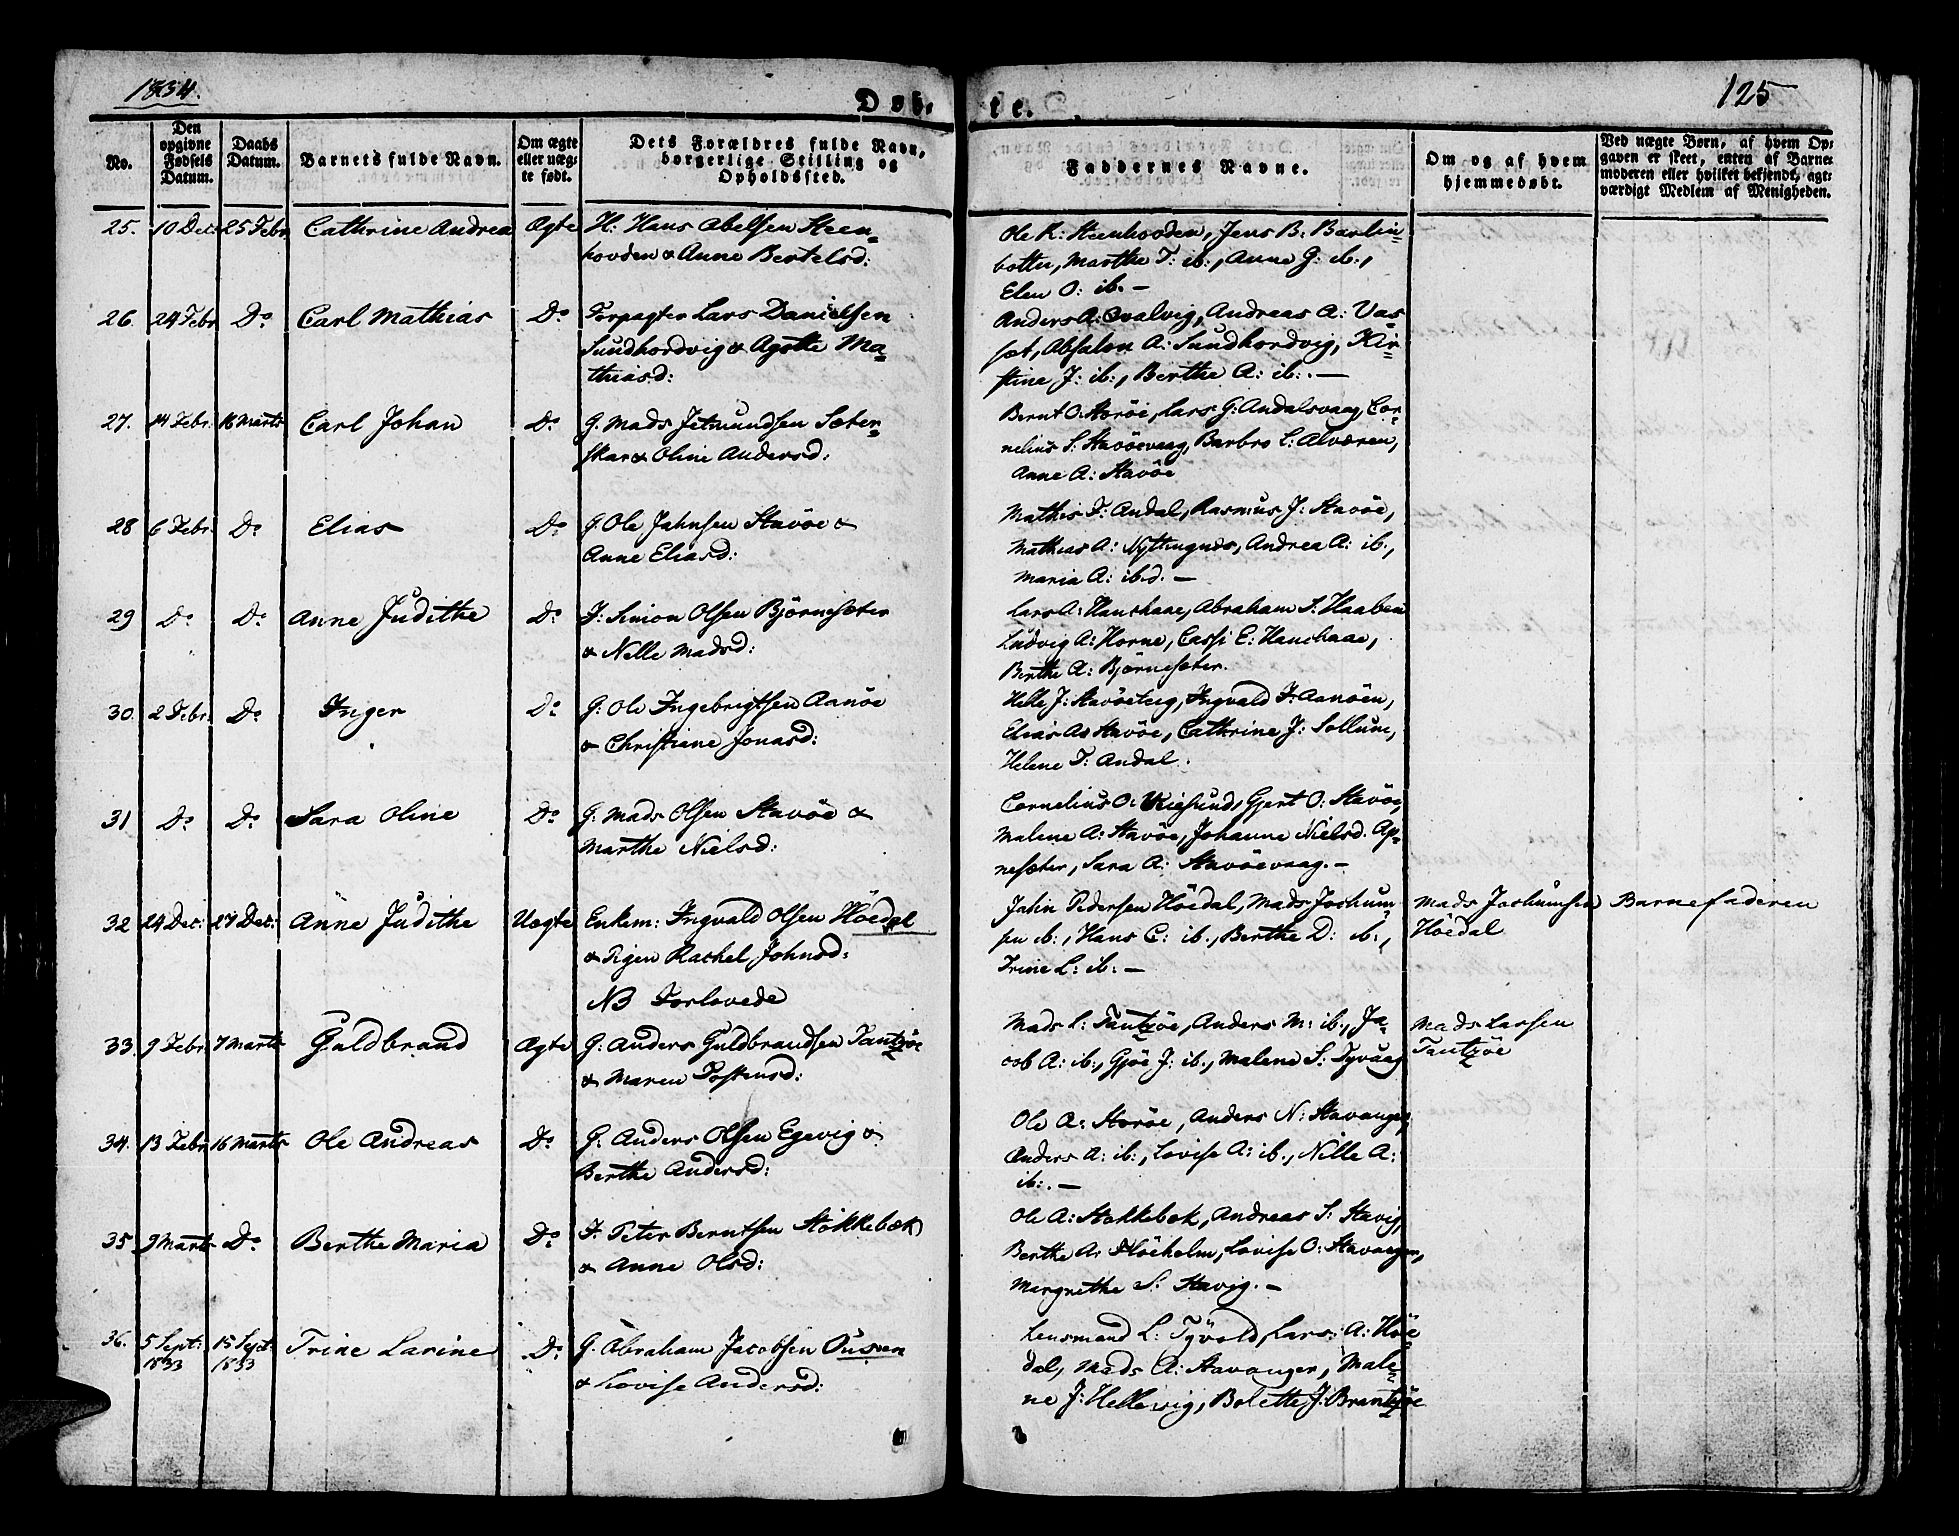 1834.
125
Døb-
te.
No.
Den opgivne Fødsels Datum.
Daabs Datum.
Barnets fulde Navn.
Om ægte eller uæg-
te født.
Dets Forældres fulde Navn,
borgerlige Stilling og
Opholdssted.
Faddernes Navne.
Om og af hvem
hjemmedøbt.
Ved uægte Børn, af hvem Op-
gaven er skeet, enten af Barne-
moderen eller hvilket bekjendt, agt-
værdigt Medlem af Menigheden.
25. 10 Dec: 25 Febr. Cathrine Andrea Ægte H: Hans Abelsen Steen-
hovden & Anne Bertelsd:
Ole K: Steenhovden, Jens B: Barlin-
botten, Marthe T: ib:, Anne G: ib:,
Elen O: ib. —
26. 24 Febr. Do Carl Mathias Do Forpagter Lars Danielsen
Sundhordvig & Agothe Ma-
thiasd:
Anders A: Qvalvig, Andreas A: Vas-
set, Absalon A: Sundhordvig, Kir-
stine J: ib:, Berthe A: ib:. —
27. 14 Febr. 16 Marts Carl Johan Do G. Mads Jetmundsen Sæter-
skar & Oline Andersd:
Bernt O. Storöe, Lars G: Andalsvaag, Cor-
nelius S: Stavöevaag, Barbro L: Alværen,
Anne A: Stavöe
28 6 Febr. Do Elias Do G. Ole Jahnsen Stavöe &
Anne Eliasd:
Mathis T: Andal, Rasmus J: Stavöe,
Mathias A: Nyttingnes, Andrea A: ib.,
Maria A: ibd. —
29 Do Do Anne Judithe Do F: Simon Olsen Björnesæter
& Nille Madsd:
Lars A: Hanehaae, Abraham S: Haaben
Ludvig A: Horne, Cassi E: Hanehaae,
Berthe A: Björnesæter.
30. 2 Febr. Do Inger Do G: Ole Ingebrigtsen Aanöe
& Christiane Jonasd:
Helle J: Stavöeteig, Ingvald I: Aanöen,
Elias A: Stavöe, Cathrine J: Sollum,
Helene T: Andal.
31 Do Do Sara Oline Do G. Mads Olsen Stavöe &
Marthe Nielsd:
Cornelius O: Kiesund, Gjert O: Stavöe,
Malene A: Stavöe, Johanne Nielsd. Ap-
nesæter, Sara A: Stavöevaag. —
32 24 Dec: 27 Dec: Anne Judithe Uegte Enkem: Ingvald Olsen Höedal
& Pigen Rachel Johnsd:
NB Forlovede
Jahn Pedersen Höedal, Mads Jochum-
sen ib:, Hans C: ib:, Berthe D: ib:,
Trine L: ib: —
Mads Jochumsen
Höedal
Barnefaderen
33. 9 Febr. 7 Marts Guldbrand Ægte G: Anders Guldbrandsen Tantzöe
& Maren Tostensd:
Mads L: Tantzöe, Anders M: ib:, Ja-
cob A: ib:, Gjöe J: ib:, Malene S: Tyvaag
Mads Larsen
Tantzöe
34. 13 Febr. 16 Marts Ole Andreas Do G: Anders Olsen Egevig &
Berthe Andersd:
Ole A: Storöe, Anders N: Stavanger,
Anders A: ib:, Lovise A: ib:, Nille A:
ib:. —
35. 9 Marts Do Berthe Maria Do F. Peter Berntsen Stökkebæk
& Anne Olsd:
Ole A: Stokkebek, Andreas S: Stavig,
Berthe A: Flöeholm, Lovise O: Stavangen,
Margrethe S: Stavig. —
36. 5 Sept: 1833 15 Sept. 1833 Trine Larine Do G. Abraham Jacobsen Ousven
& Lovise Andersd:
Lensmand L: Tyvold, Lars A: Höe-
dal, Mads A: Stavanger, Male-
ne J: Hellevig, Bolette J: Brantzöe